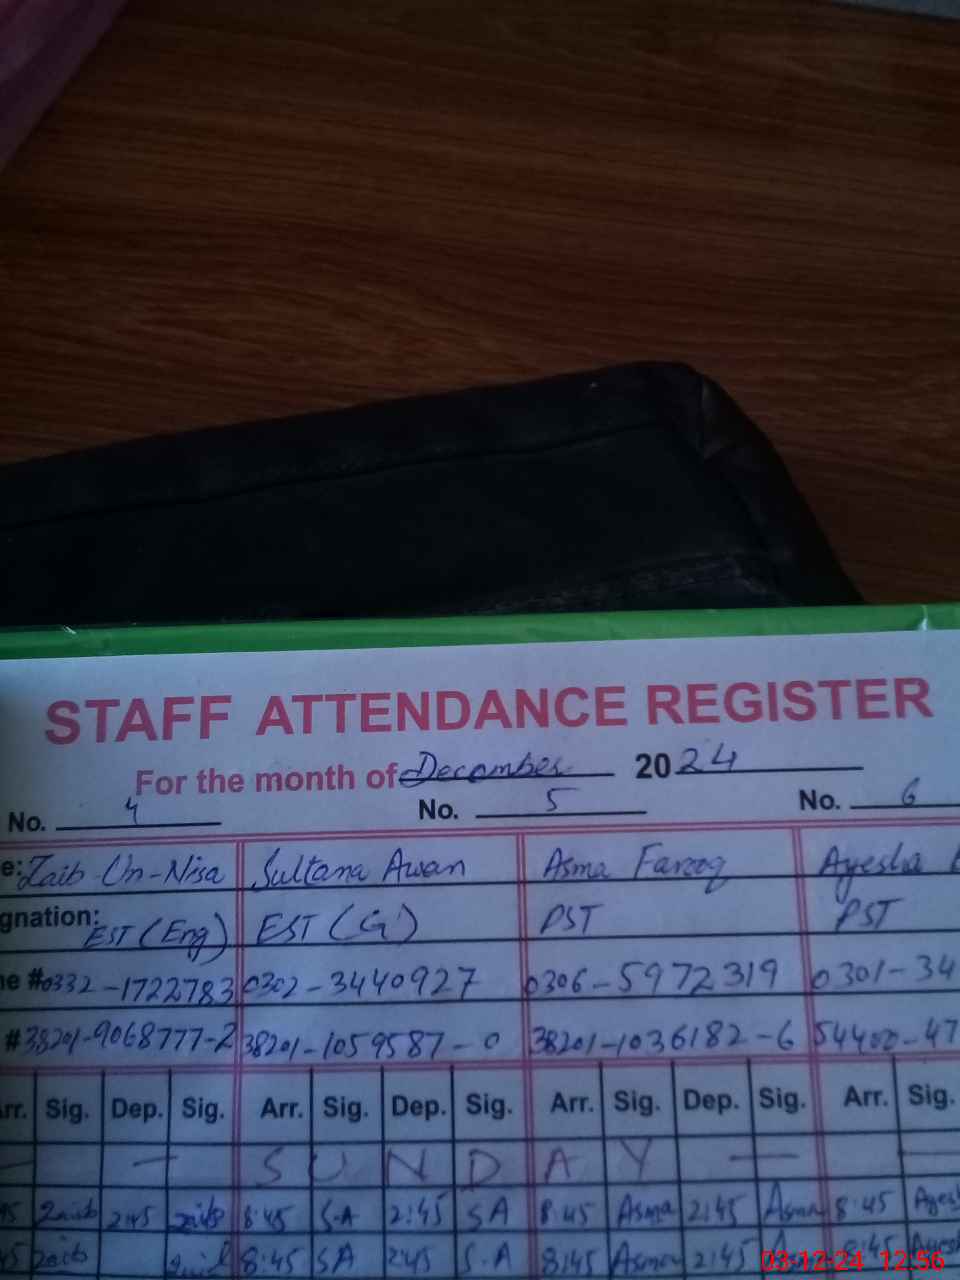 STAFF ATTENDANCE REGISTER
For the month of December 2024
No. 4 No. 5 No. 6
e: Zaib-Un-Nisa Sultana Awan Asma Farooq Ayesha
gnation: EST (Eng) EST (G) PST PST
ne #0332-1722783 0302-3440927 0306-5972319 0301-34
#38201-9068777-2 38201-1059587-0 38201-1036182-6 54400-47
Arr. Sig. Dep. Sig. Arr. Sig. Dep. Sig. Arr. Sig. Dep. Sig. Arr. Sig.
— — S U N D A Y — —
45 Zaib 2:45 Zaib 8:45 S.A 2:45 SA 8:45 Asma 2:45 Asma 8:45 Ayes
45 Zaib 8:45 SA 2:45 S.A 8:45 Asma 2:45 8:45
03-12-24 12:56